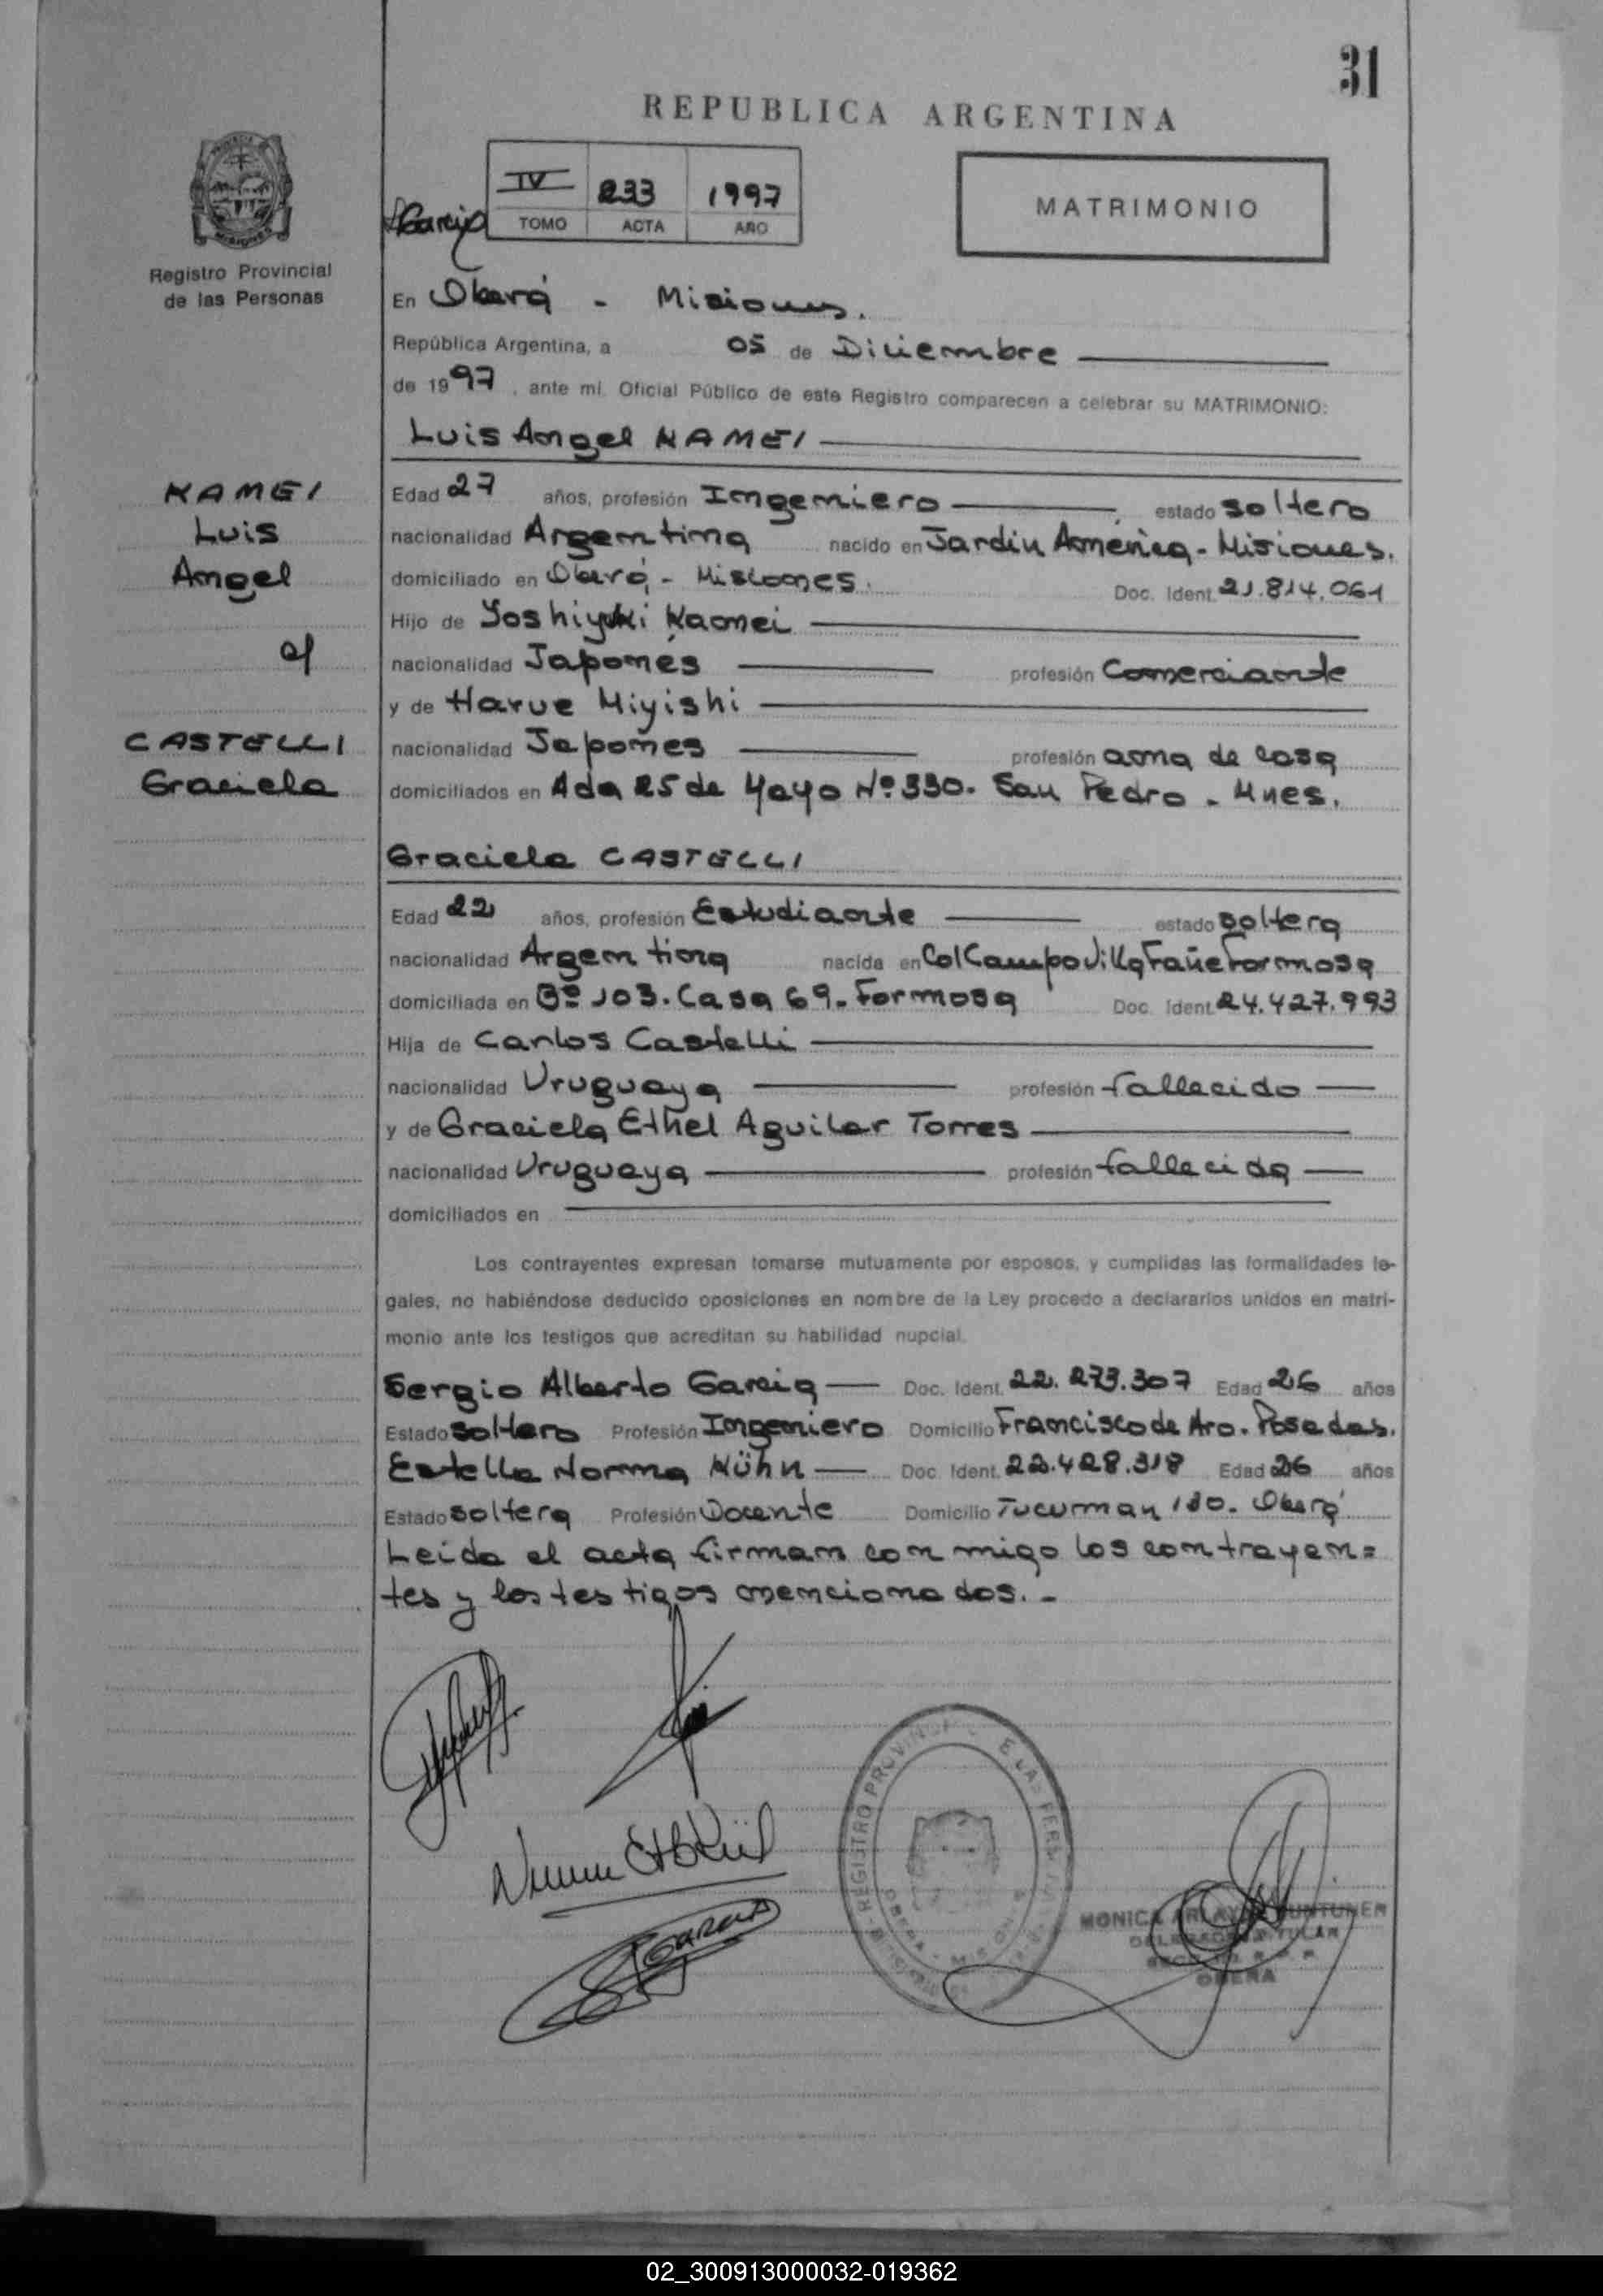 31
REPUBLICA ARGENTINA
IV 233 1997
TOMO ACTA AÑO
MATRIMONIO
Registro Provincial
de las Personas
En Oberá - Misiones.
República Argentina, a 05 de Diciembre
de 1997, ante mí. Oficial Público de este Registro comparecen a celebrar su MATRIMONIO:
Luis Angel KAMEI
KAMEI
Luis
Angel
c/
CASTELLI
Graciela
Edad 27 años, profesión Ingeniero estado soltero
nacionalidad Argentina nacido en Jardín América - Misiones.
domiciliado en Oberá - Misiones. Doc. Ident. 21.814.061
Hijo de Yoshiyuki Kamei
nacionalidad Japonés profesión Comerciante
y de Harue Miyishi
nacionalidad Japones profesión ama de casa
domiciliados en Ada 25 de Mayo Nº 330. San Pedro - Mnes.
Graciela CASTELLI
Edad 22 años, profesión Estudiante estado soltera
nacionalidad Argentina nacida en Col Campo Villa Fañe Formosa
domiciliada en Bº 103. Casa 69. Formosa Doc. Ident. 24.427.993
Hija de Carlos Castelli
nacionalidad Uruguaya profesión fallecido
y de Graciela Ethel Aguilar Torres
nacionalidad Uruguaya profesión fallecida
domiciliados en
Los contrayentes expresan tomarse mutuamente por esposos, y cumplidas las formalidades le-
gales, no habiéndose deducido oposiciones en nombre de la Ley procedo a declararlos unidos en matri-
monio ante los testigos que acreditan su habilidad nupcial.
Sergio Alberto Garcia Doc. Ident. 22.273.307 Edad 26 años
Estado soltero Profesión Ingeniero Domicilio Francisco de Aro. Posadas.
Estella Norma Kühn Doc. Ident. 22.428.318 Edad 26 años
Estado soltera Profesión Docente Domicilio Tucuman 180. Oberá
Leida el acta firman con migo los contrayen=
tes y los testigos mencionados. -
GARCIA
REGISTRO PROVINCIAL DE LAS PERSONAS
OBERA - MISIONES
MONICA
DELEGADA TITULAR
OBERA
02_300913000032-019362